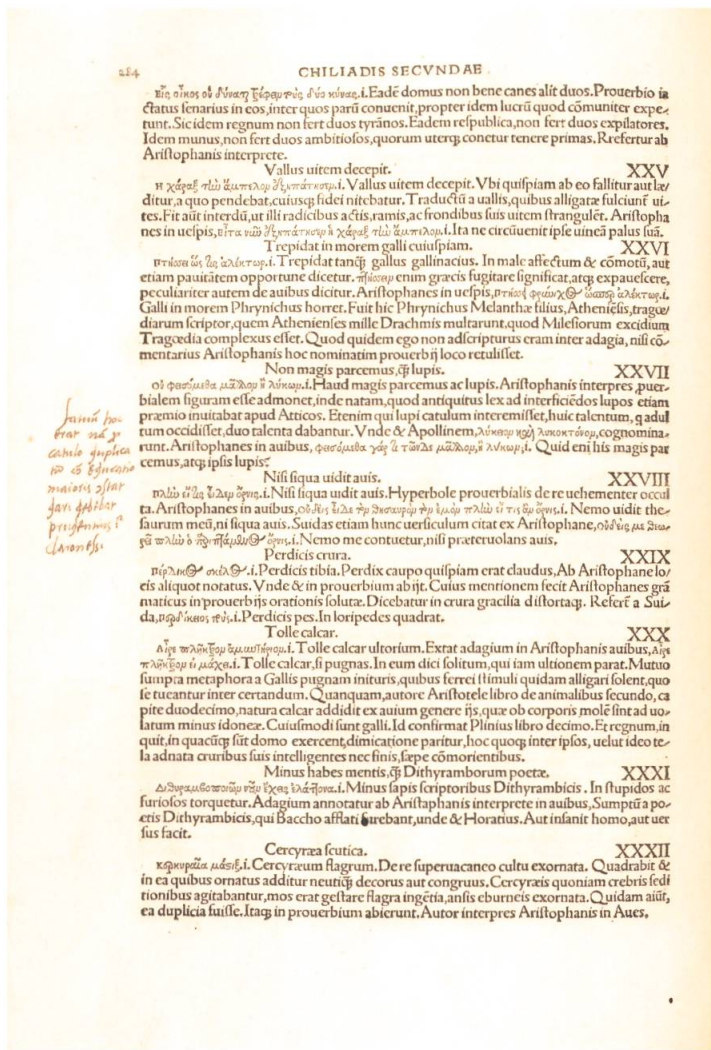 284
CHILIADIS SECVNDAE
Εἷς οἶκος οὐ δύναται τρέφειν τοὺς δύο κύνας.i.Eadē domus non bene canes alit duos.Prouerbio ia
ctatus senarius in eos,inter quos parū conuenit,propter idem lucrū quod cōmuniter expe-
tunt.Sic idem regnum non fert duos tyrānos.Eadem respublica,non fert duos expilatores.
Idem munus,non fert duos ambitiosos,quorum uterq; conetur tenere primas.Rrefertur ab
Aristophanis interprete.
Vallus uitem decepit. XXV
Η χάραξ τὴν ἄμπελον ἐξηπάτησεν.i.Vallus uitem decepit.Vbi quispiam ab eo fallitur aut læ/
ditur,a quo pendebat,cuiusq; fidei nitebatur.Traductū a uallis,quibus alligatæ fulciunt̄ ui-
tes.Fit aūt interdū,ut illi radicibus actis,ramis,ac frondibus suis uitem strangulēt.Aristopha
nes in uespis,εἶτα νῦν ἐξηπάτησεν ἡ χάραξ τὴν ἄμπελον.i.Ita ne circūuenit ipse uineā palus suā.
Trepidat in morem galli cuiuspiam. XXVI
Πτήσσει ὥς τις ἀλέκτωρ.i.Trepidat tanq̄ gallus gallinacius.In male affectum & cōmotū,aut
etiam pauitātem opportune dicetur. πτήσσειν enim græcis fugitare significat,atq; expauescere,
peculiariter autem de auibus dicitur.Aristophanes in uespis,πτήσσει φρύνιχος ὥσπερ ἀλέκτωρ.i.
Galli in morem Phrynichus horret.Fuit hic Phrynichus Melanthæ filius,Atheniēsis,tragœ/
diarum scriptor,quem Athenienses mille Drachmis multarunt,quod Milesiorum excidium
Tragœdia complexus esset.Quod quidem ego non adscripturus eram inter adagia,nisi cō-
mentarius Aristophanis hoc nominatim prouerbij loco retulisset.
Non magis parcemus,q̄ lupis. XXVII
Οὐ φεισόμεθα μᾶλλον ἢ λύκων.i.Haud magis parcemus ac lupis.Aristophanis interpres ,puer-
bialem figuram esse admonet,inde natam,quod antiquitus lex ad interficiēdos lupos etiam
præmio inuitabat apud Atticos.Etenim qui lupi catulum interemisset,huic talentum,q adul
tum occidisset,duo talenta dabantur.Vnde & Apollinem,λύκειον καὶ λυκοκτόνον,cognomina-
runt.Aristophanes in auibus, φεισόμεθα γάρ τι τῶνδε μᾶλλον,ἢ λύκων,i.Quid eni his magis par
cemus,atq; ipsis lupis?
Nisi siqua uidit auis. XXVIII
Πλὴν εἴ τις εἶδεν ὄρνις.i.Nisi siqua uidit auis.Hyperbole prouerbialis de re uehementer occul
ta.Aristophanes in auibus,οὐδεὶς εἶδε τὸν θησαυρὸν τὸν ἐμὸν πλὴν εἴ τις ἂν ὄρνις.i.Nemo uidit the
saurum meū,ni siqua auis.Suidas etiam hunc uersiculum citat ex Aristophane,οὐδείς με θεω-
ρεῖ πλὴν ὁ παριπτάμενος ὄρνις.i.Nemo me contuetur,nisi præteruolans auis.
Perdicis crura. XXIX
Πέρδικος σκέλος.i.Perdicis tibia.Perdix caupo quispiam erat claudus,Ab Aristophane lo/
cis aliquot notatus.Vnde & in prouerbium abijt.Cuius mentionem fecit Aristophanes grā
maticus in prouerbijs orationis solutæ.Dicebatur in crura gracilia distortaq;.Refert̄ a Sui-
da,περδίκειος πούς.i.Perdicis pes.In loripedes quadrat.
Tolle calcar. XXX
Αἶρε πλῆκτρον ἀμυντήριον.i.Tolle calcar ultorium.Extat adagium in Aristophanis auibus,αἶρε
πλῆκτρον εἰ μάχει.i.Tolle calcar,si pugnas.In eum dici solitum,qui iam ultionem parat.Mutuo
sumpta metaphora a Gallis pugnam inituris,quibus ferrei stimuli quidam alligari solent,quo
se tueantur inter certandum.Quanquam,autore Aristotele libro de animalibus secundo,ca
pite duodecimo,natura calcar addidit ex auium genere ijs,quæ ob corporis molē sint ad uo-
latum minus idoneæ.Cuiusmodi sunt galli.Id confirmat Plinius libro decimo.Et regnum,in
quit,in quacūq; sūt domo exercent,dimicatione paritur,hoc quoq; inter ipsos,uelut ideo te-
la adnata cruribus suis intelligentes nec finis,sæpe cōmorientibus.
Minus habes mentis,q̄ Dithyramborum poetæ. XXXI
Διθυραμβοποιῶν νοῦν ἔχεις ἐλάττονα.i.Minus sapis scriptoribus Dithyrambicis . In stupidos ac
furiosos torquetur.Adagium annotatur ab Aristaphanis interprete in auibus,Sumptū a po-
etis Dithyrambicis,qui Baccho afflati furebant,unde & Horatius.Aut insanit homo,aut uer
sus facit.
Cercyræa scutica. XXXII
Κορκυραῖα μάστιξ.i.Cercyræum flagrum.De re superuacaneo cultu exornata. Quadrabit &
in ea quibus ornatus additur neutiq̄ decorus aut congruus.Cercyræis quoniam crebris sedi
tionibus agitabantur,mos erat gestare flagra ingētia,ansis eburneis exornata.Quidam aiūt,
ea duplicia fuisse.Itaq; in prouerbium abierunt.Autor interpres Aristophanis in Aues.